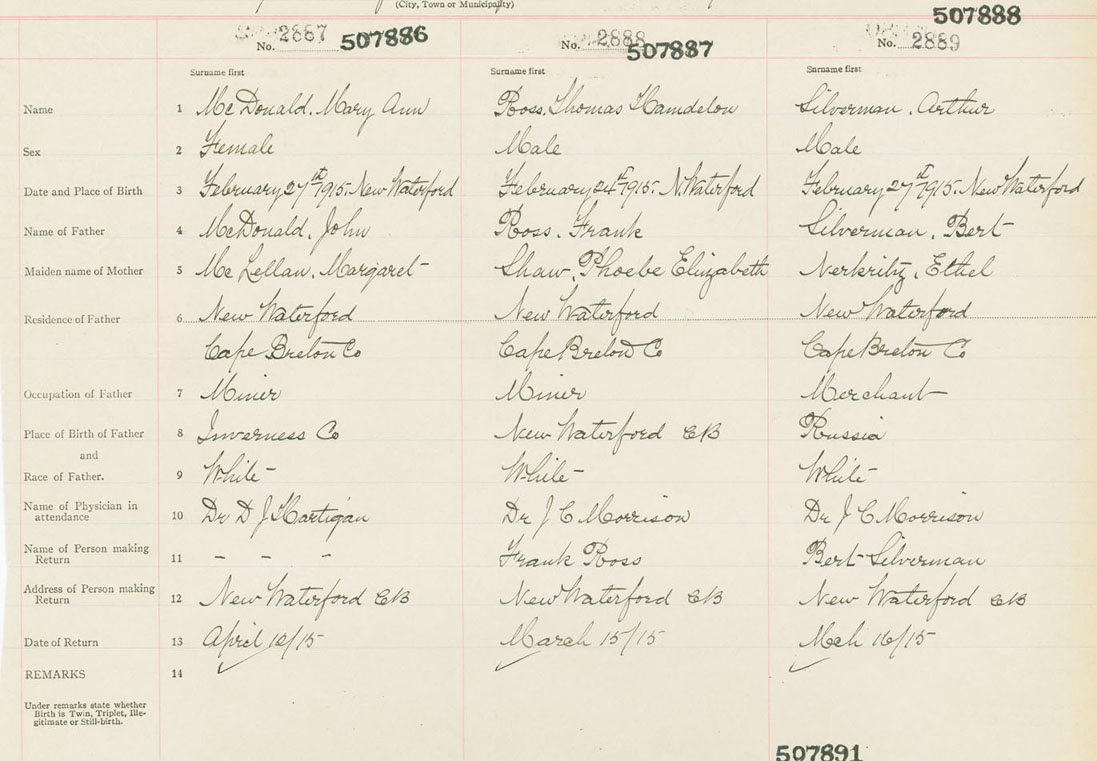 (City, Town or Municipality)
507888
No. 2887 507886 No. 2888 507887 No. 2889
Surname first Surname first Surname first
Name 1 McDonald, Mary Ann Ross, Thomas Hamdelon Silverman, Arthur
Sex 2 Female Male Male
Date and Place of Birth 3 February 27th 1915. New Waterford February 24th 1915. N. Waterford February 27th 1915. New Waterford
Name of Father 4 McDonald, John Ross, Frank Silverman, Bert
Maiden name of Mother 5 McLellan, Margaret Shaw, Phoebe Elizabeth Ethel
Residence of Father 6 New Waterford New Waterford New Waterford
Cape Breton Co Cape Breton Co Cape Breton Co
Occupation of Father 7 Miner Miner Merchant
Place of Birth of Father 8 Inverness Co New Waterford CB Russia
and
Race of Father. 9 White White White
Name of Physician in
attendance 10 Dr D J Hartigan Dr J C Morrison Dr J C Morrison
Name of Person making
Return 11 - - - Frank Ross Bert Silverman
Address of Person making
Return 12 New Waterford CB New Waterford CB New Waterford CB
Date of Return 13 April /15 March 15/15 Mch 16/15
REMARKS 14
Under remarks state whether
Birth is Twin, Triplet, Ille-
gitimate or Still-birth.
507891